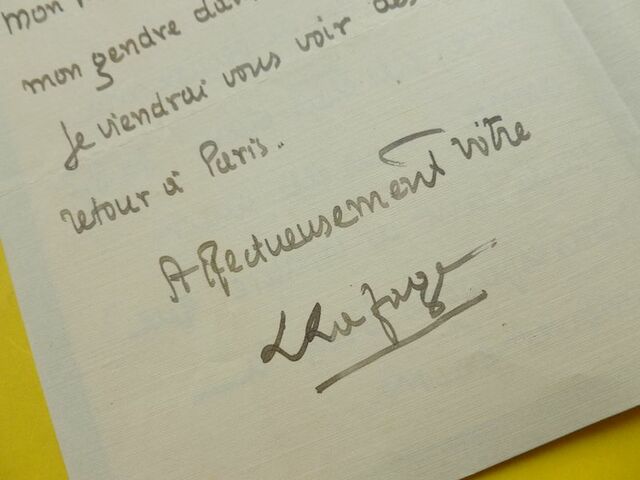 mon
mon gendre dan
Je viendrai vous voir dès
retour à Paris.
Affectueusement vôtre
LLafage